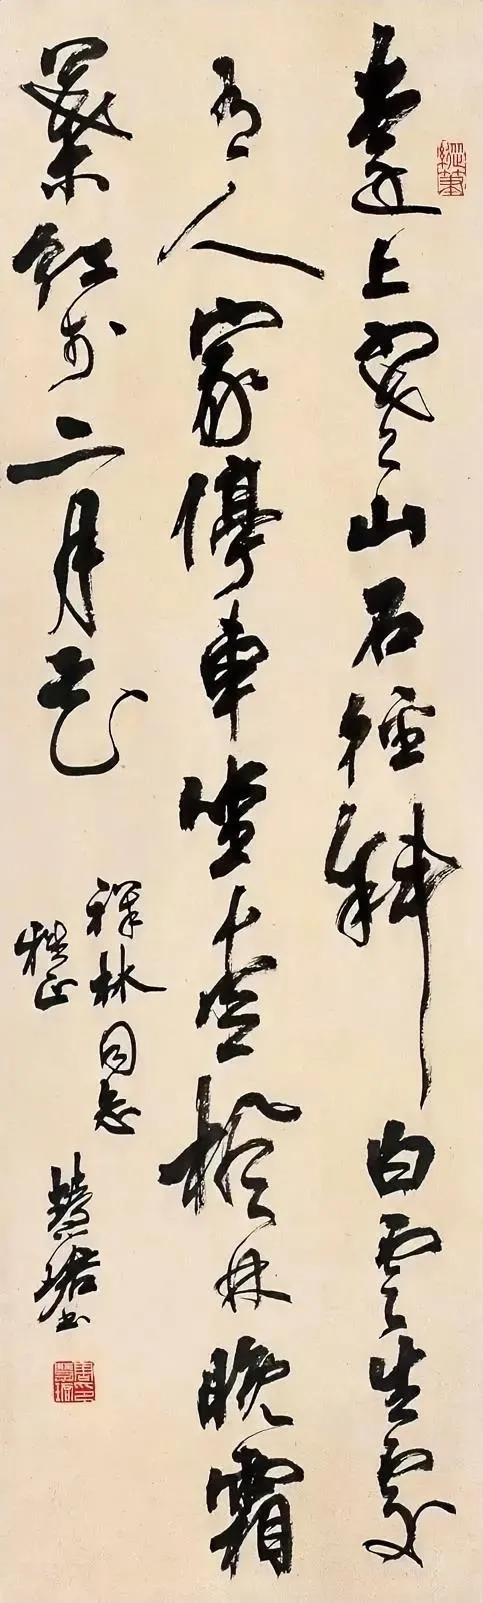 遠上寒山石徑斜白雲生處
有人家停車坐愛楓林晚霜
葉紅於二月花
祥林同志
雅正
慧珺書